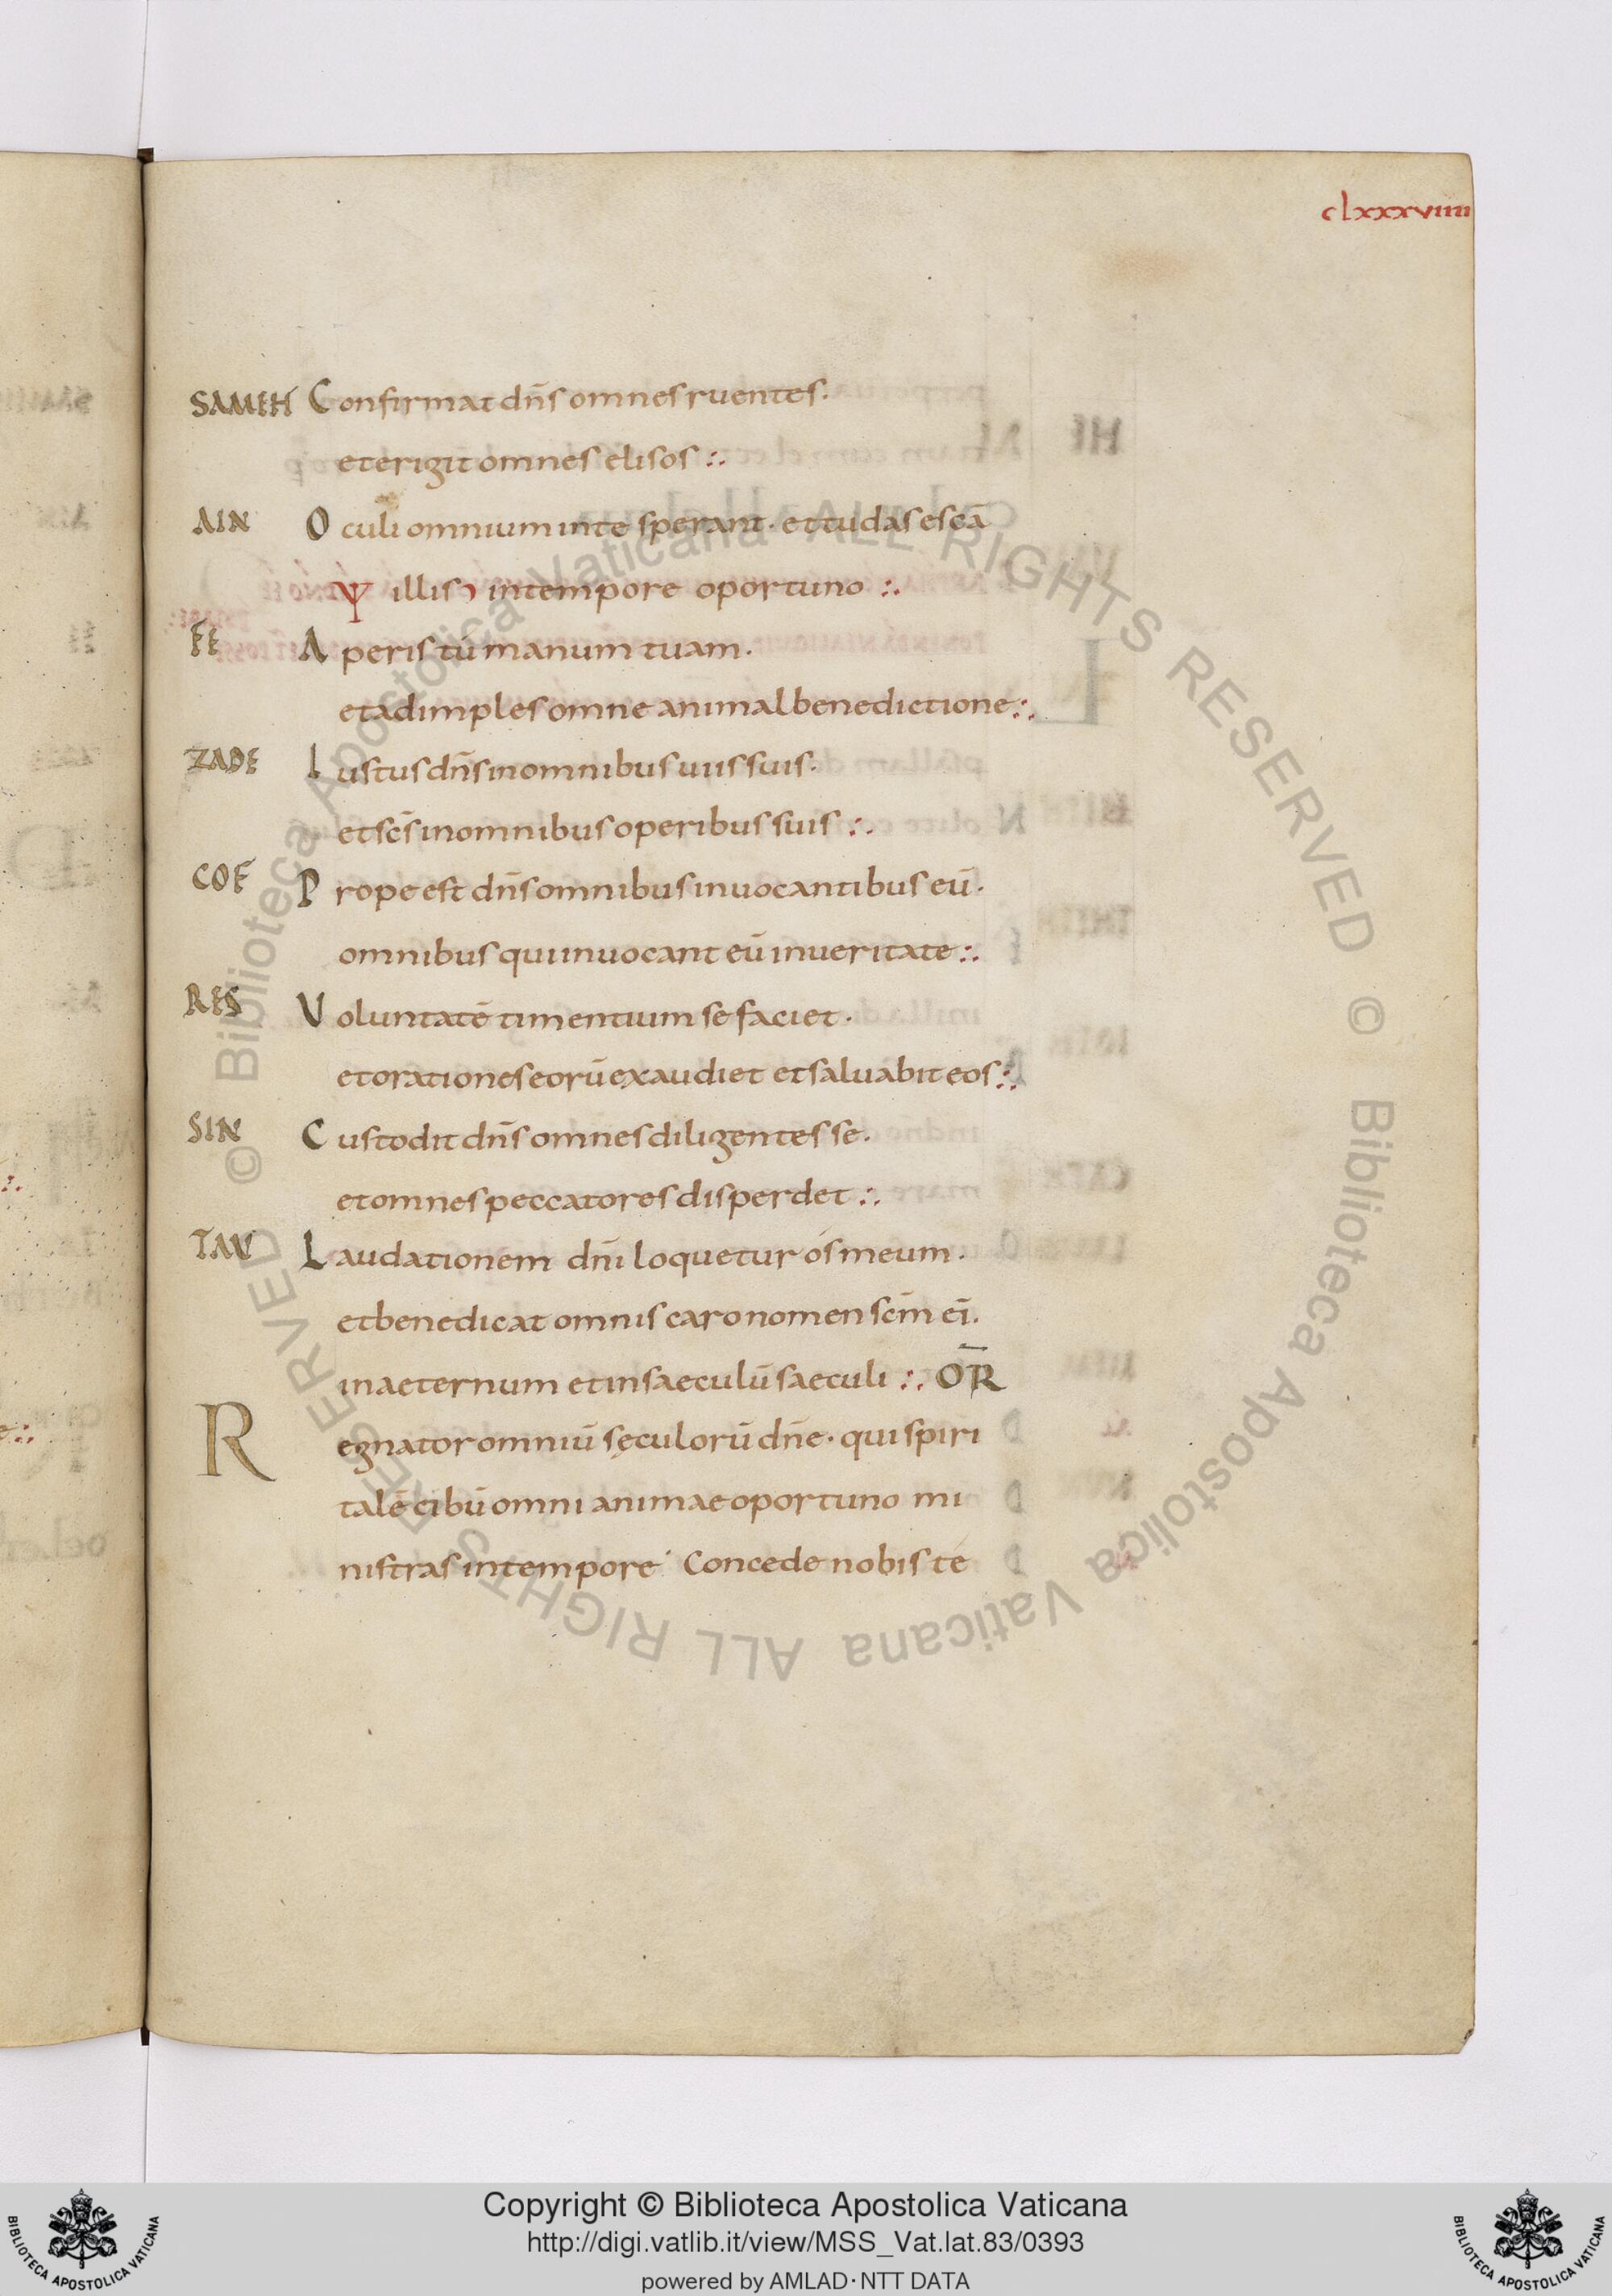 clxxxviiii
SAMEH Confirmat dn̄s omnes ruentes.
et erigit omnes elisos :.
AIN Oculi omnium in te sperant. et tu das escā
illis in tempore oportuno :.
FE Aperis tú manum tuam.
et ádimples omne animal benedictione :.
ZADE Iustus dn̄s in omnibus uiis suis.
et sc̄s in omnibus operibus suis :.
COF Prope est dn̄s omnibus inuocantibus eū.
omnibus qui inuocant eū in ueritate :.
RES Voluntatē timentium se faciet.
et orationes eorū exaudiet et saluabit eos :.
SIN Custodit dn̄s omnes diligentes se.
et omnes peccatores disperdet :.
TAV Laudationem dn̄i loquetur ós meum.
et benedicat omnis caro nomen scm̄ ei̅.
in aeternum et in saeculū saeculi :. OR̄
Regnator omniū sęculorū dn̄e. qui spiri
talē cibū omni animae oportuno mi
nistras in tempore. Concede nobis té
© Biblioteca Apostolica Vaticana ALL RIGHTS RESERVED © Biblioteca Apostolica Vaticana ALL RIGHTS RESERVED
Copyright © Biblioteca Apostolica Vaticana
http://digi.vatlib.it/view/MSS_Vat.lat.83/0393
powered by AMLAD·NTT DATA
BIBLIOTECA APOSTOLICA VATICANA
BIBLIOTECA APOSTOLICA VATICANA